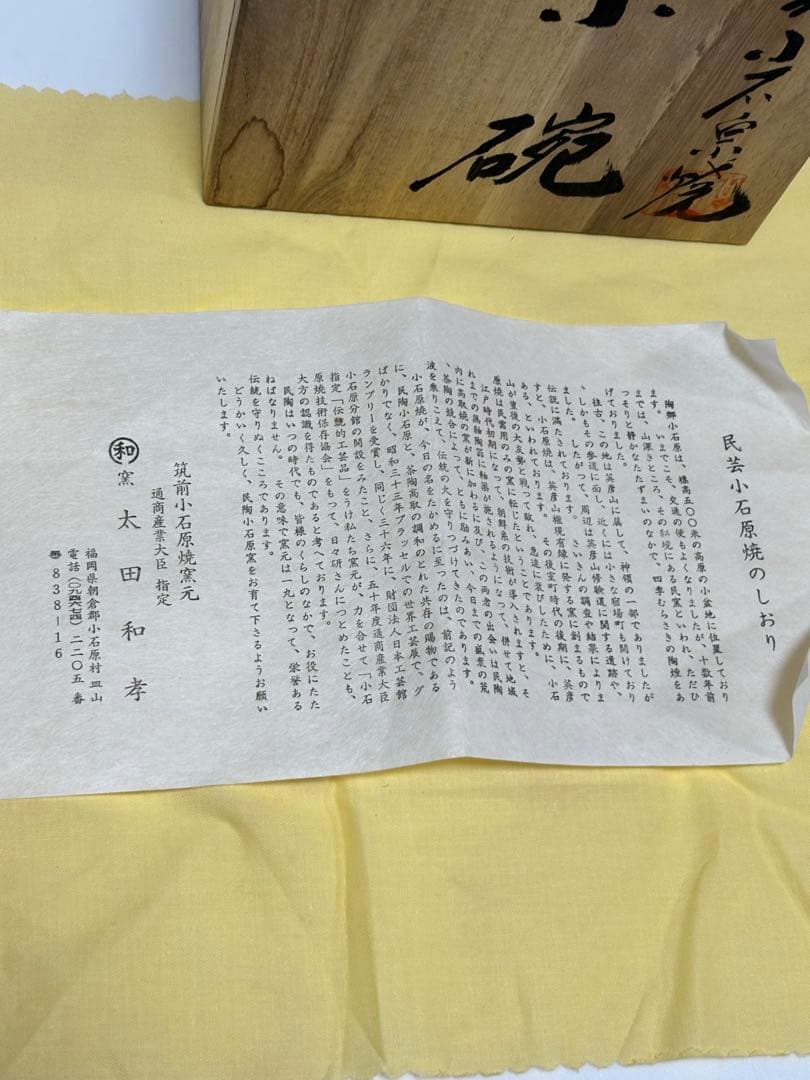 小石原焼
碗
民芸小石原焼のしおり
陶郷小石原は、標高五〇〇米の高原の小盆地に位置しており
ます。いまでこそ、交通の便もよくなりましたが、十数年前
までは、山深きところ、その秘境にある民窯といわれ、ただひ
つそりと静かなたたずまいのなかで、四季むらさきの陶煙をあ
げておりました。
往古、この地は英彦山に属して、神領の一部でありましたが
、しかもその参道に面し、近くには小さな宿場町も開けており
ました。したがつて、周辺は英彦山修験道に関する遺跡や、
伝統に満たされております。さいきんの調査や結果によりま
すと、小石原焼は、英彦山権現有縁に発する窯に創まるもので
ある、といわれております。その後室町時代の後期に、英彦
山が豊後の大友勢と戦って敗れ、急追に衰びしたために、小石
原焼は民需用のみの窯に転じたということであります。
江戸時代初期になって、朝鮮系の技術が導入されますと、そ
れまでの無釉陶器に釉薬が施されるようになって、併せて地域
内に高取焼の窯が新に加わるに及び、この両者の出会いは民陶
、茶陶の競合によって、ともに励みあい、今日までの盛衰の荒
波を乗りこえて、伝統の火を守りつづけてきたのであります。
小石原焼が、今日の名をたかめるに至つたのは、前記のよう
に、民陶小石原と、茶陶高取の調和のとれた共存の賜物である
ばかりでなく、昭和三十三年ブラッセルでの世界工芸展で、グ
ランプリーを受賞し、同じく三十六年に、財団法人日本工芸館
小石原分館の開設をみたこと、さらに、五十年度通商産業大臣
指定「伝統的工芸品」をうけ私たち窯元が、力を合せて「小石
原焼技術保存協会」をもって、日々研さんにつとめたことも、
大方の認識を得たものであると考へております。
民陶はいつの時代でも、皆様のくらしのなかで、お役にたた
ねばなりません。その意味で窯元は一丸となつて、栄誉ある
伝統を守りぬくこころであります。
どうかいく久しく、民陶小石原窯をお育て下さるようお願い
いたします。
筑前小石原焼窯元
通商産業大臣 指定
㊒窯 太田和孝
福岡県朝倉郡小石原村皿山
電話(〇九四六七四)二二〇五番
〠838-16